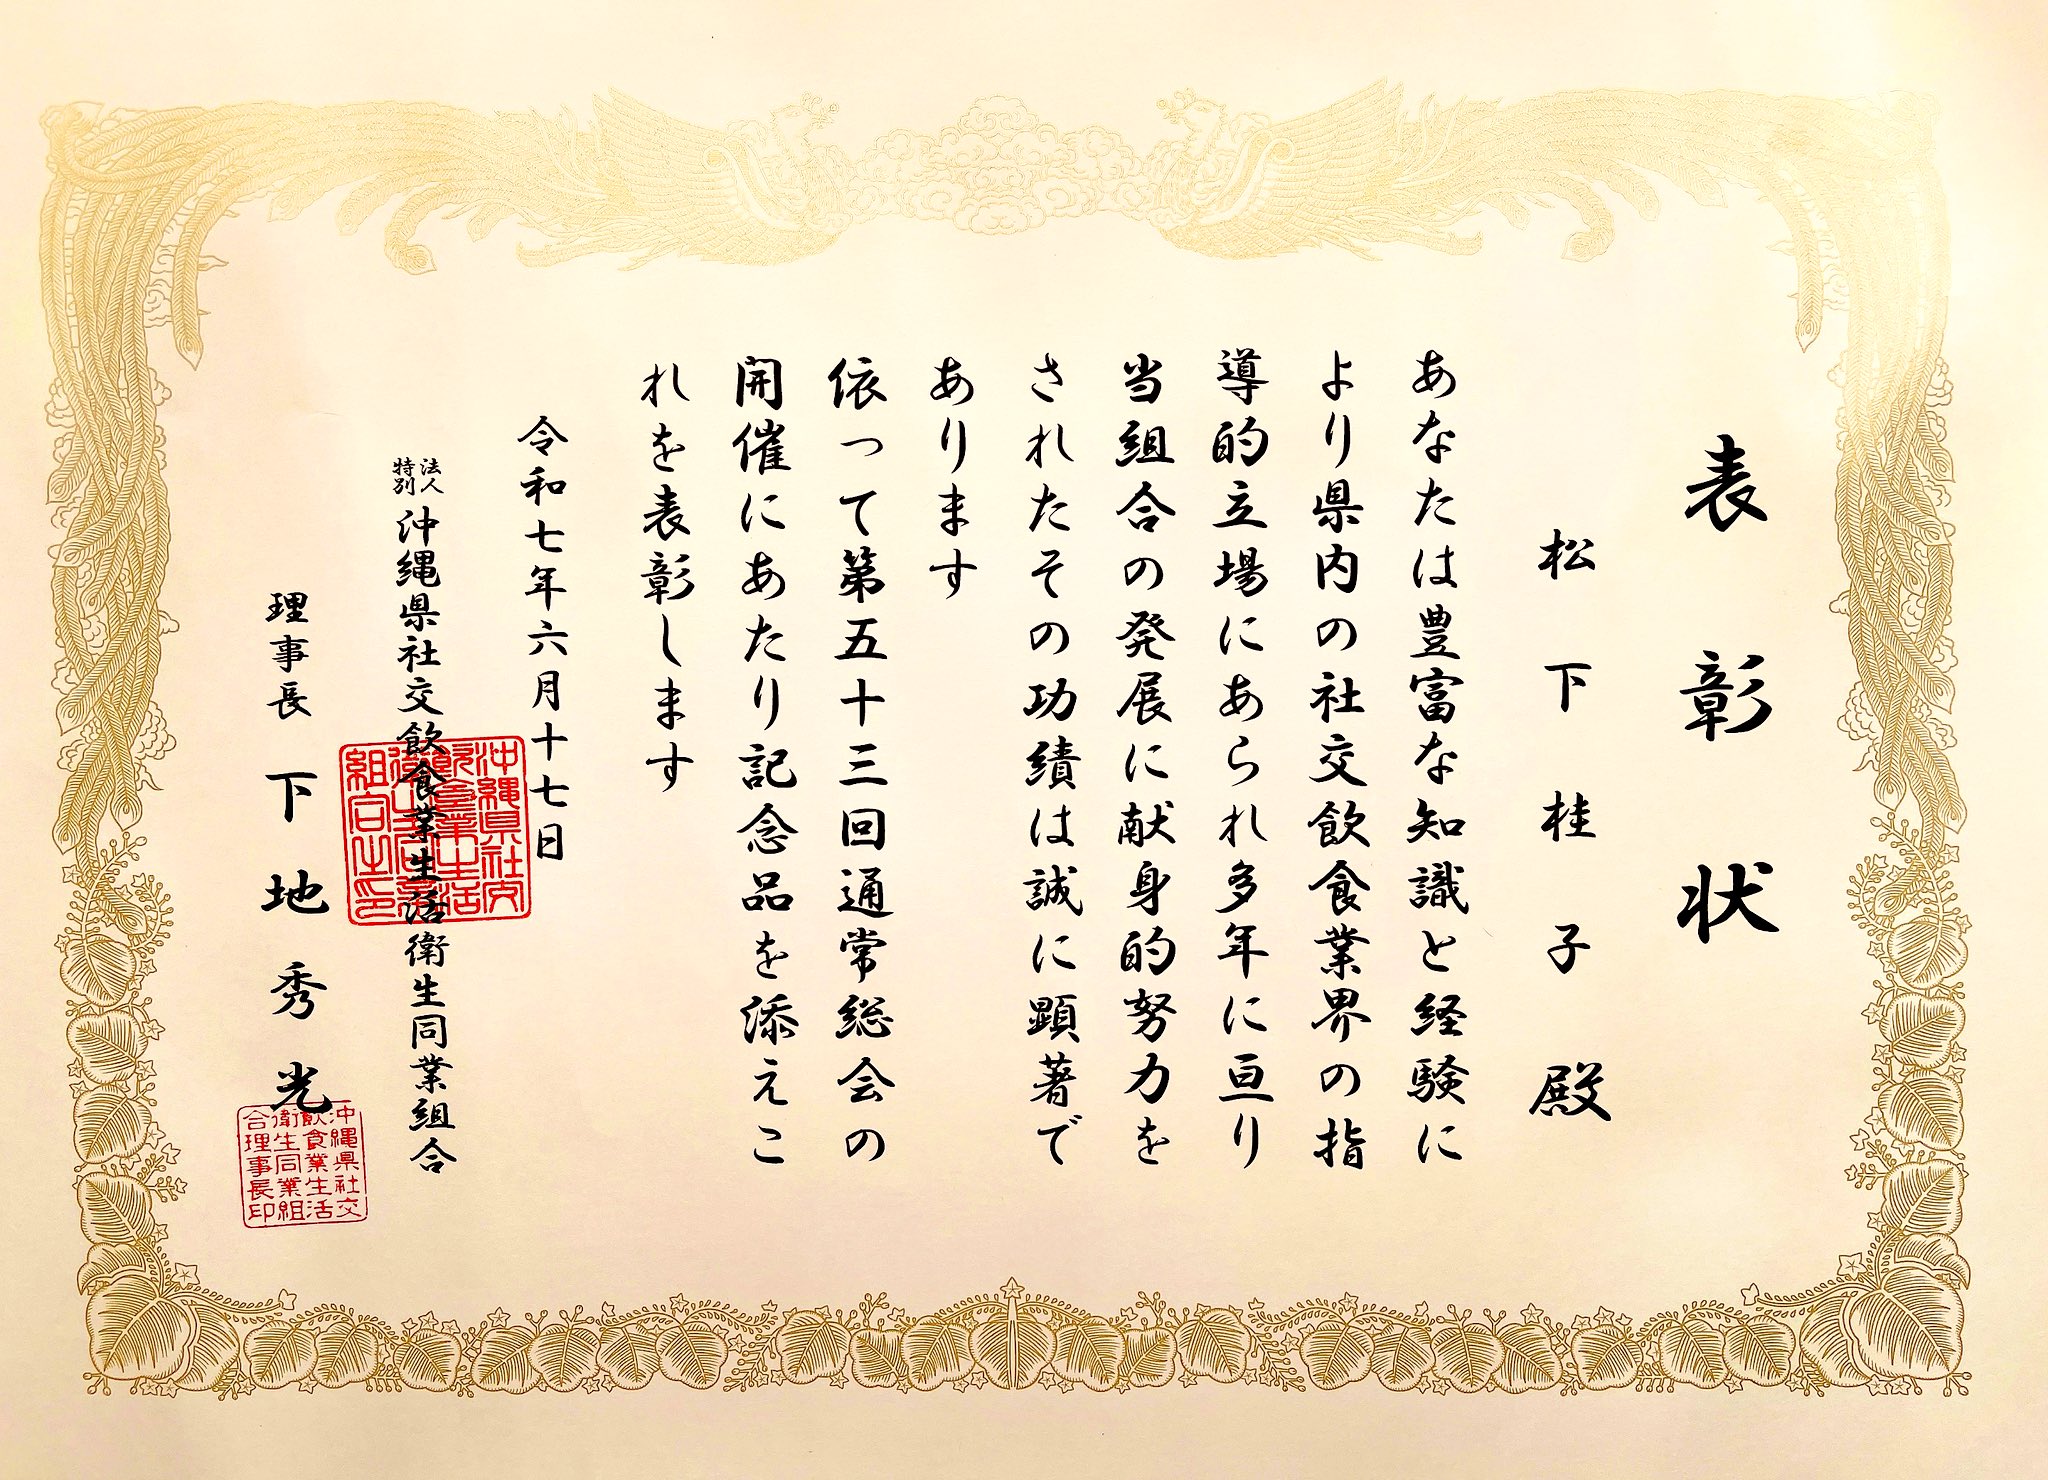 表彰状
松下桂子殿
あなたは豊富な知識と経験に
より県内の社交飲食業界の指
導的立場にあられ多年に亘り
当組合の発展に献身的努力を
されたその功績は誠に顕著で
あります
依って第五十三回通常総会の
開催にあたり記念品を添えこ
れを表彰します
令和七年六月十七日
特別法人 沖縄県社交飲食業生活衛生同業組合
理事長 下地秀光
沖縄県社交
飲食業生活
衛生同業組
合理事長印